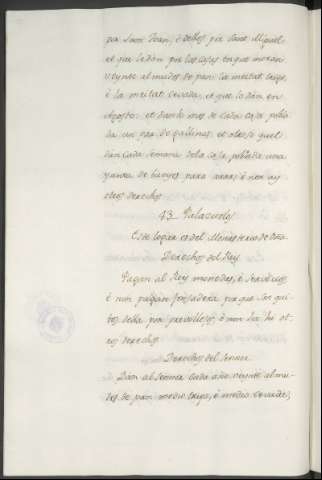 por Sant Juan, é dellos por Sant Miguel
et que le dan por las casas en que moran
veynte almudes de pan la meitat trigo,
é la meitat cevada, et que lo dan en
Agosto: et danle mas de cada casa pobla
da un par de gallinas et
dan cada semana de la casa poblada una
yunta de bueyes para arar, é non ay
otros derechos
43. Palazuelos
Este logar es del Monesterio de Oña
Derechos del Rey
Pagan al Rey monedas, é servicios
é non pagan fonsadera por que son qui
tos della por previllejo, é non ha hi ot
ros derechos
Derechos del Sennor
Dan al Sennor cada año veynte almu
des de pan medio trigo, é medio cevada,